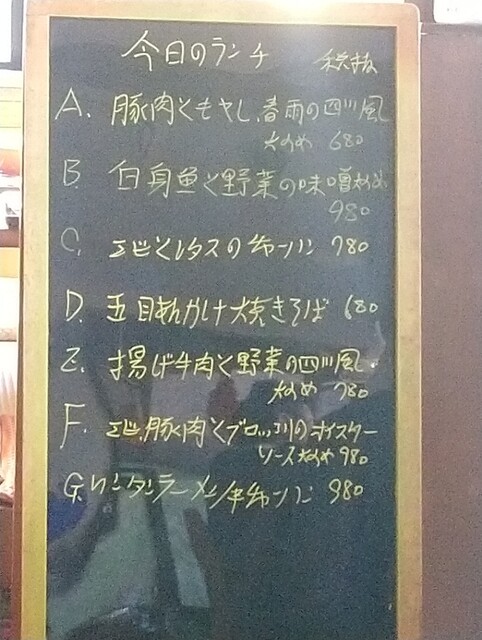 今日のランチ 税抜
A. 豚肉ともやし、春雨の四川風
炒め 680
B. 白身魚と野菜の味噌炒め
980
C. エビとレタスのチャーハン 780
D. 五目あんかけ焼きそば 680
E. 揚げ牛肉と野菜の四川風
炒め 780
F. エビ、豚肉とブロッコリのオイスター
ソース炒め 980
G. ワンタンラーメン/半チャーハン 980